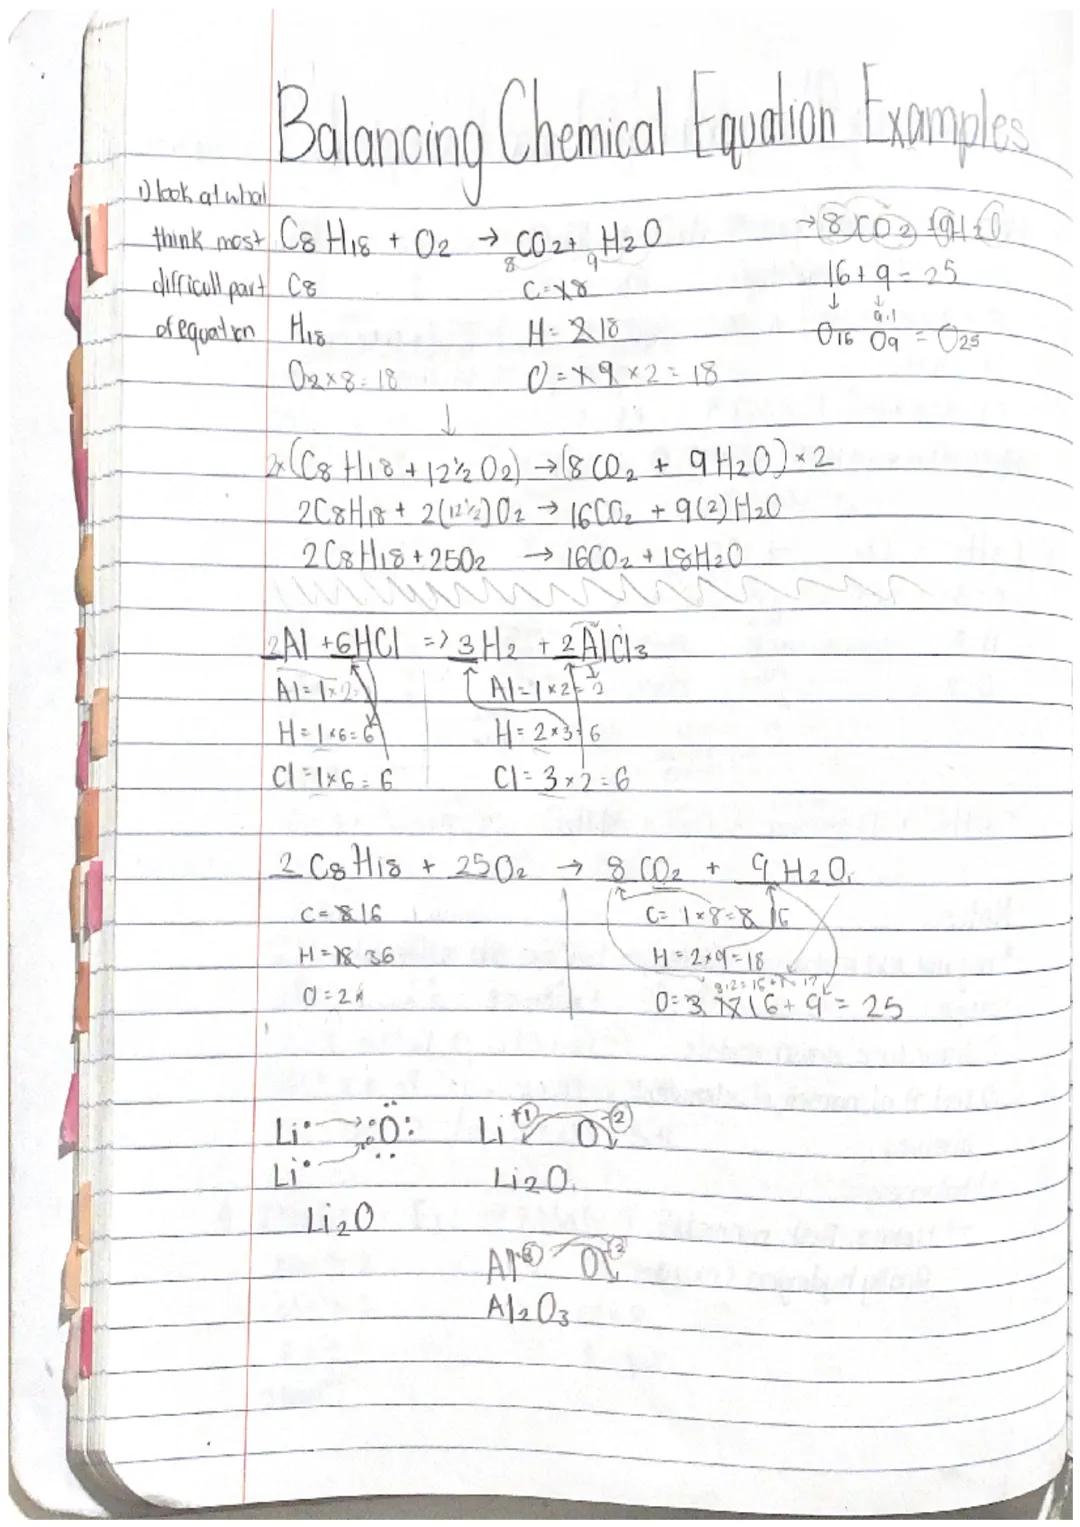 Balancing Chemical Equation Examples
1) look at what
think most difficult part
of equation
C8 H18 + O2 → 8 CO2 + 9 H2O
C8 C = 8
H18 H = 2 18
O2 × 8 = 18 O = 9 × 2 = 18
→ 8 CO2 + 9 H2O
16 + 9 = 25
↓ ↓
9.1
O16 O9 = O25
↓
2x (C8 H18 + 12½ O2) → (8 CO2 + 9 H2O) × 2
2C8H18 + 2(12½) O2 → 16CO2 + 9(2) H2O
2 C8 H18 + 25O2 → 16CO2 + 18H2O
2Al + 6HCl => 3 H2 + 2 AlCl3
Al = 1 × 2 = Al = 1 × 2 = 2
H = 1 × 6 = 6 H = 2 × 3 = 6
Cl = 1 × 6 = 6 Cl = 3 × 2 = 6
2 C8 H18 + 25 O2 → 8 CO2 + 9 H2O
C = 8 16 C = 1 × 8 = 8 16
H = 18 36 H = 2 × 9 = 18
8·2 = 16 + 1 = 17
O = 2 O = 3 17 16 + 9 = 25
Li• → :Ö: Li +1 O -2
Li• Li2O
Li2O
Al 3 O 2
Al2O3